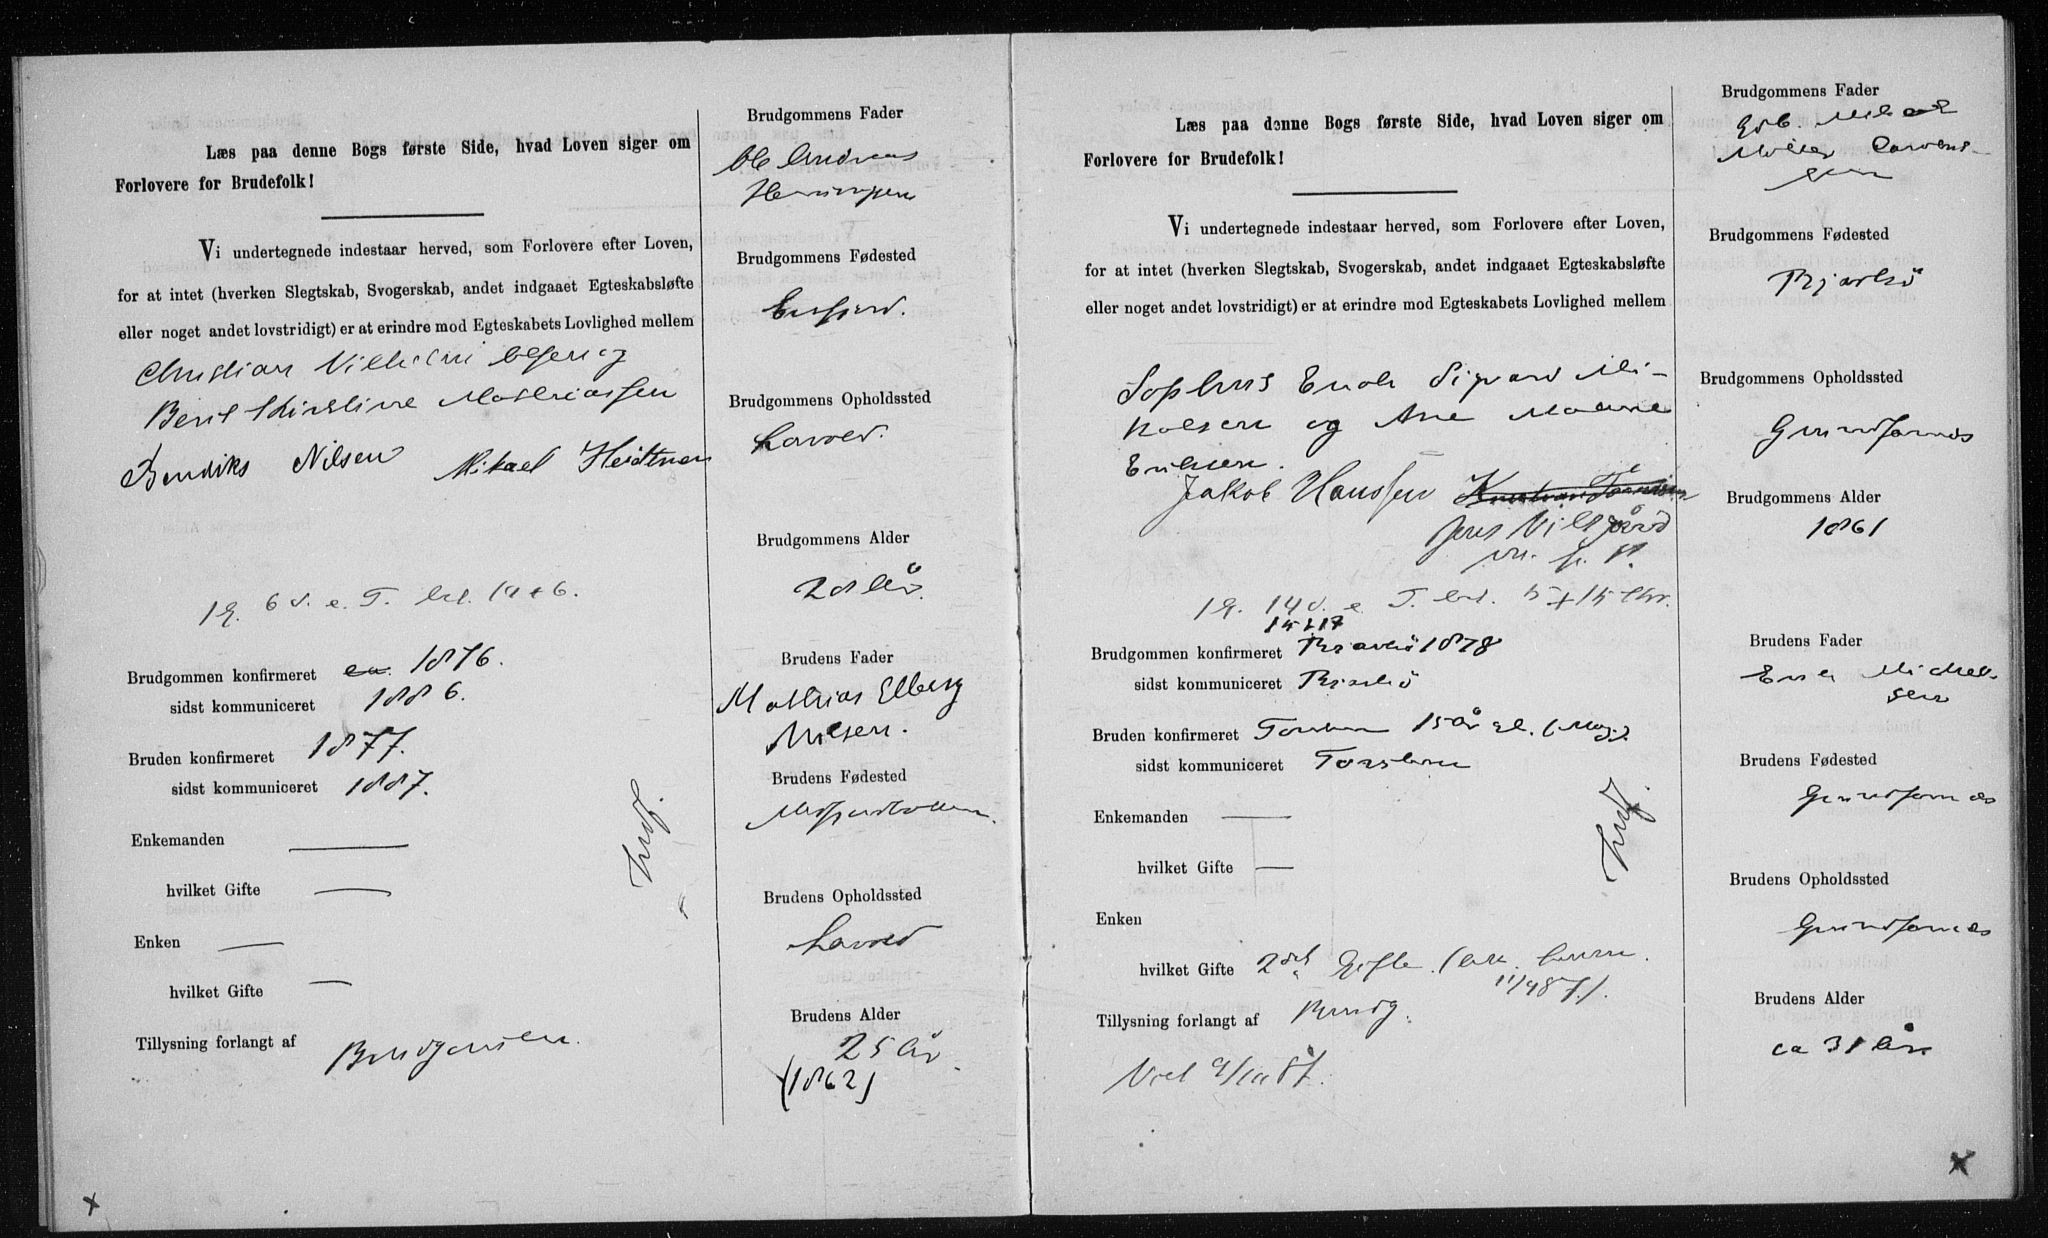 Læs paa denne Bogs første Side, hvad Loven siger om
Forlovere for Brudefolk!
Vi undertegnede indestaar herved, som Forlovere efter Loven,
for at intet (hverken Slegtskab, Svogerskab, andet indgaaet Egteskabsløfte
eller noget andet lovstridigt) er at erindre mod Egteskabets Lovlighed mellem
Christian Vilhelm Olsen og
Berit Kirstine Mathiassen
Bendiks Nilsen Mikael Heidtman
19. 6 S. e. T.
Brudgommen konfirmeret ca. 1876.
sidst kommuniceret 1886.
Bruden konfirmeret 1877.
sidst kommuniceret 1887.
Enkemanden
hvilket Gifte
Enken
hvilket Gifte
Tillysning forlangt af Brudgommen.
Indf.
Brudgommens Fader
Ole Andreas
Henningsen
Brudgommens Fødested
Brudgommens Opholdssted
Lavold.
Brudgommens Alder
28 År
Brudens Fader
Mathias Elberg
Nilsen.
Brudens Fødested
Brudens Opholdssted
Lavold
Brudens Alder
25 År.
(1862)
Læs paa denne Bogs første Side, hvad Loven siger om
Forlovere for Brudefolk!
Vi undertegnede indestaar herved, som Forlovere efter Loven,
for at intet (hverken Slegtskab, Svogerskab, andet indgaaet Egteskabsløfte
eller noget andet lovstridigt) er at erindre mod Egteskabets Lovlighed mellem
Sophus Enok Sigvard Mi-
kalsen og Ane Malene
Eriksen.
Jakob Hanssen
Jens Vilsgård
m. f. P.
19. 14 S. e. T.
15+17
Brudgommen konfirmeret Bjarkö 1878
sidst kommuniceret Bjarkö
Bruden konfirmeret Torsken 15 År gl.
sidst kommuniceret Torsken
Enkemanden
hvilket Gifte
Enken
hvilket Gifte 2det Gifte
11/4 87).
Tillysning forlangt af Brudg.
Viet 9/10 87.
Indf.
Brudgommens Fader
Møller
Brudgommens Fødested
Bjarkö
Brudgommens Opholdssted
Grundfarnes
Brudgommens Alder
1861
Brudens Fader
Erik Mickel-
sen
Brudens Fødested
Grundfarnes
Brudens Opholdssted
Grundfarnes
Brudens Alder
ca 31 År